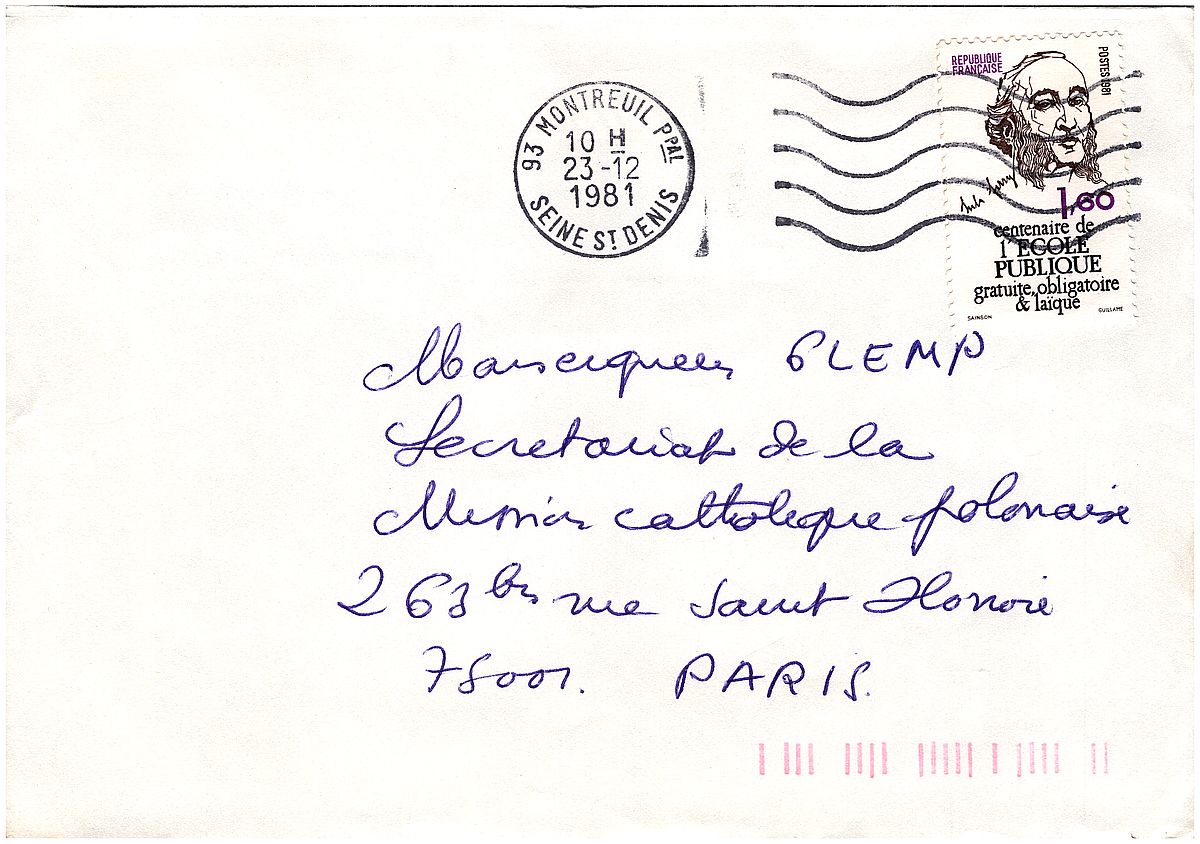 RÉPUBLIQUE
FRANÇAISE
POSTES 1981
1,60
centenaire de
l'ECOLE
PUBLIQUE
gratuite, obligatoire
& laïque
SAINSON
GUILLAME
93 MONTREUIL PPAL
10 H
23-12
1981
SEINE ST DENIS
Monseigneur GLEMP
Secretariat de la
Mission catholique polonaise
263 bis rue Saint Honoré
75001. PARIS.